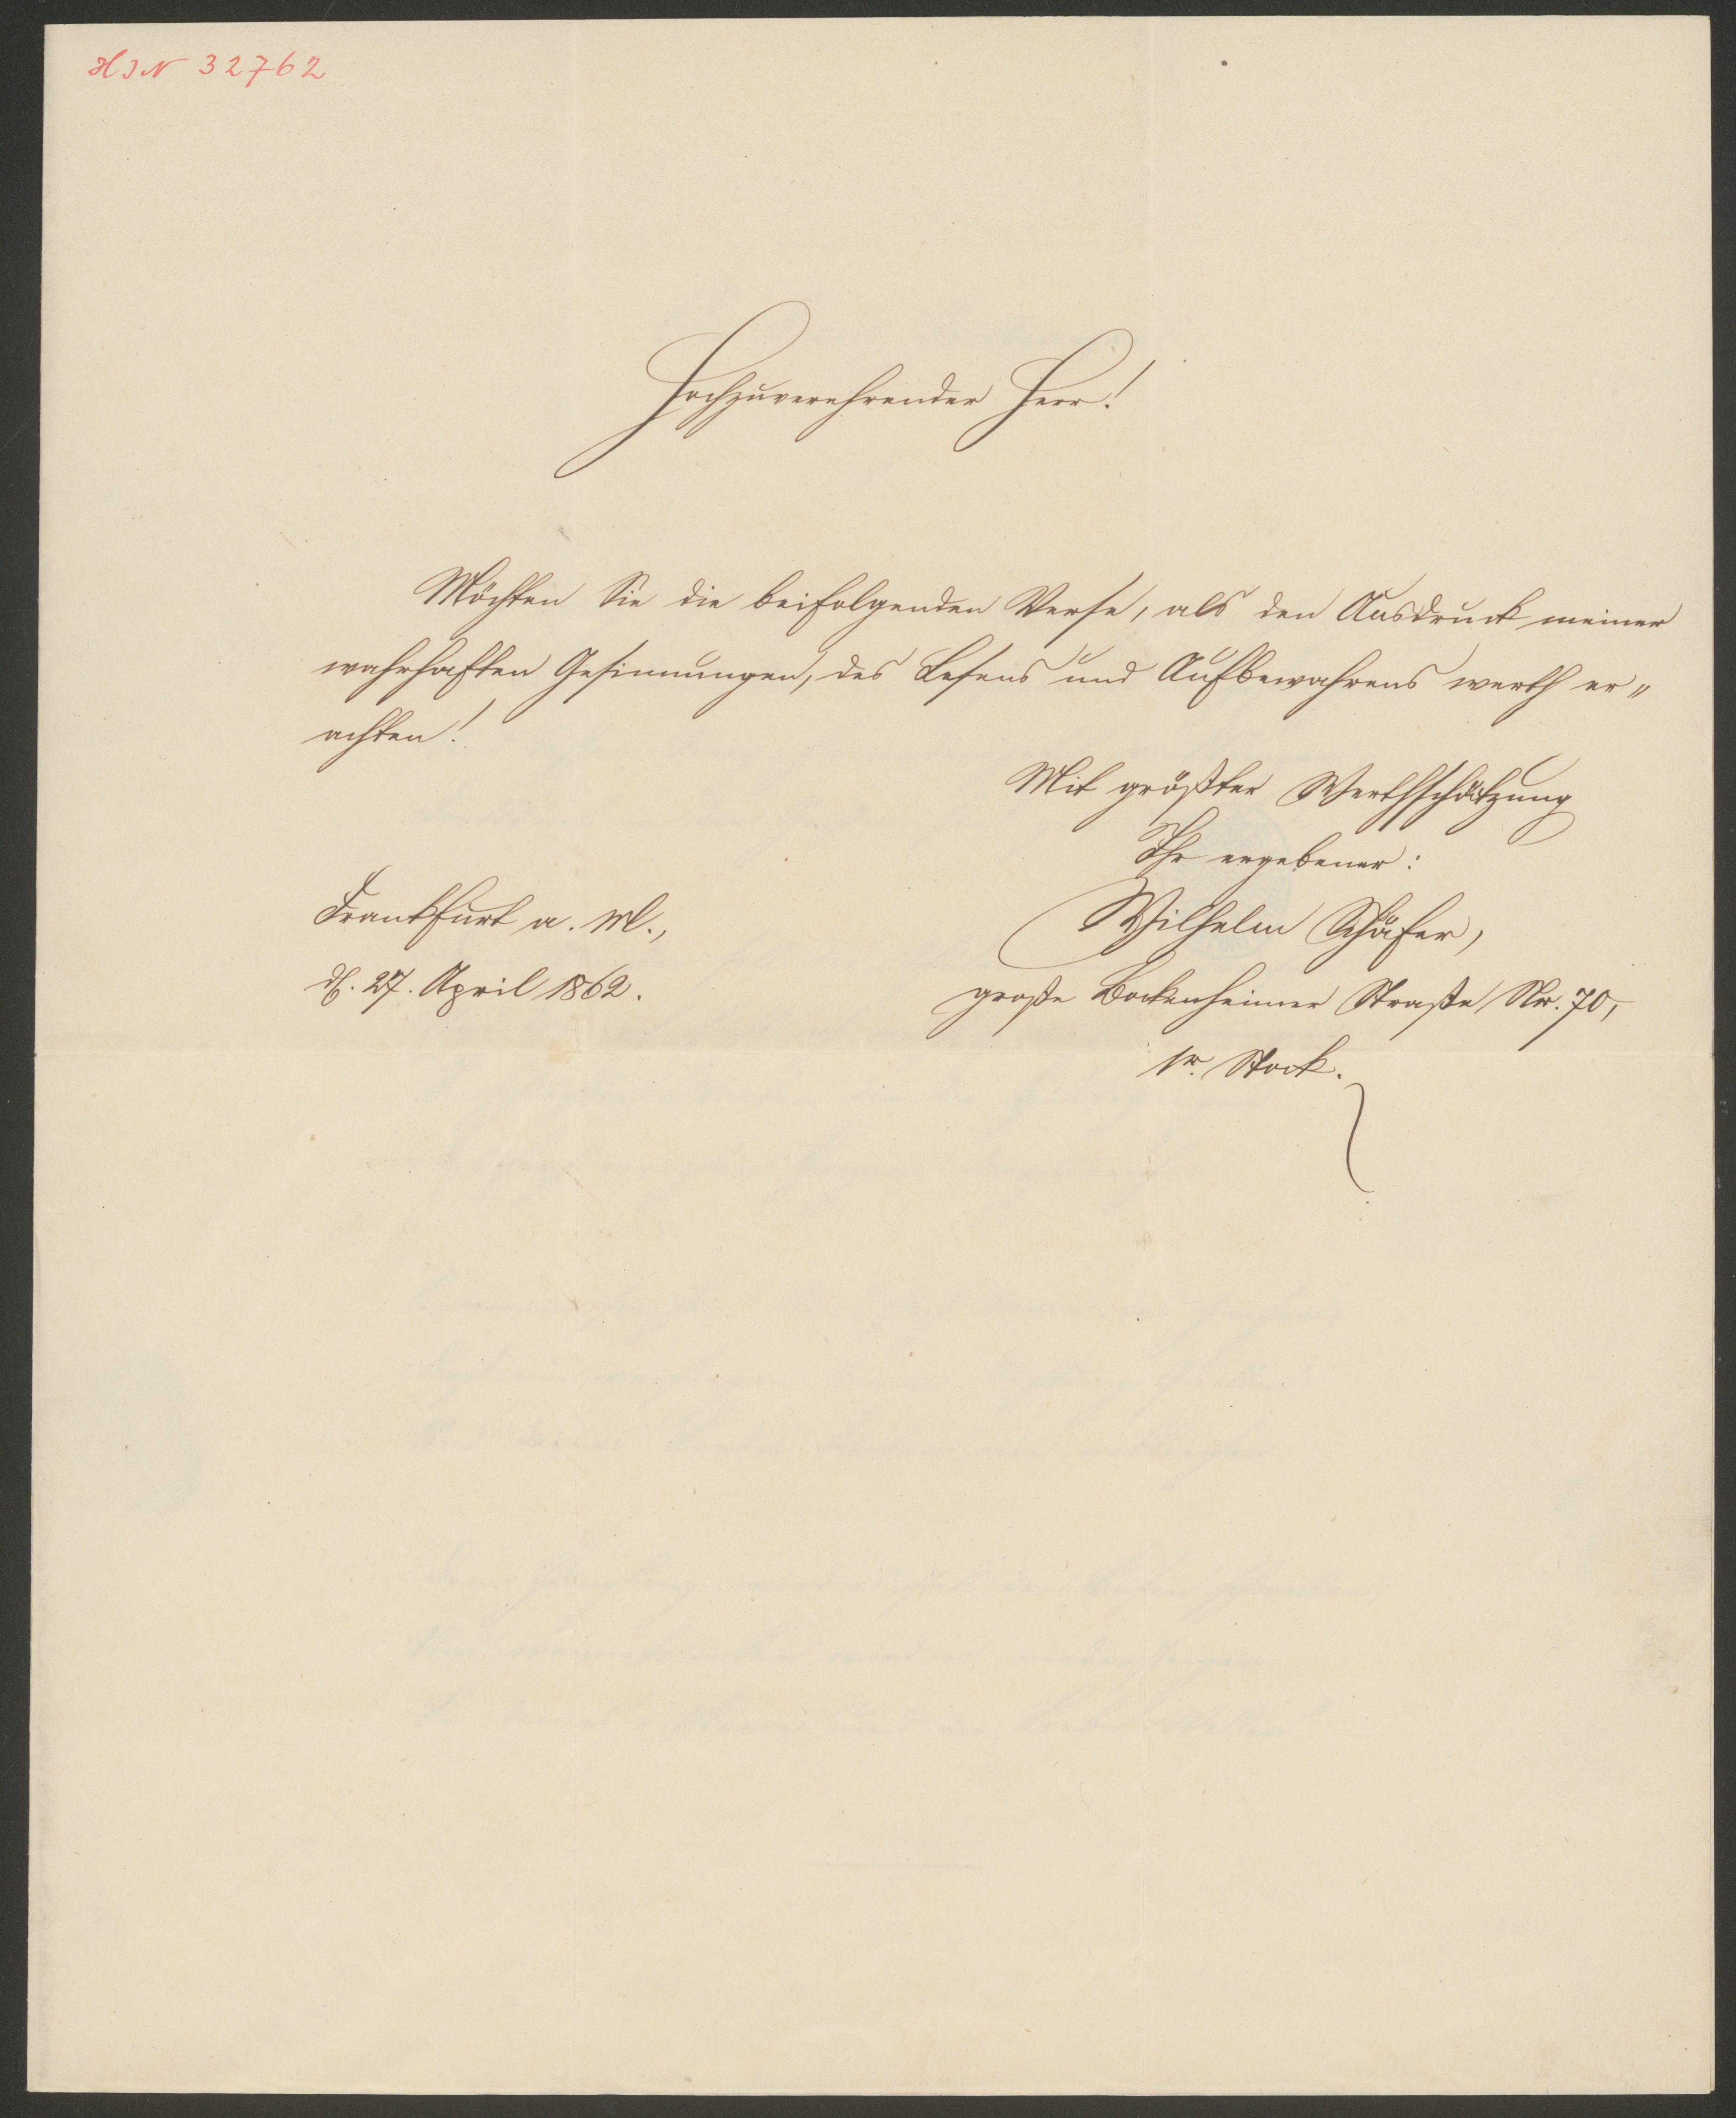 HIN 32762
Hochzuverehrender Herr!
Möchten Sie die beifolgenden Verse, als den Ausdruck meiner
wahrhaften Gesinnungen, des Lesens und Aufbewahrens werth er„
achten!
Mit größter Werthschätzung
Ihr ergebener:
Wilhelm Schäfer,
große Bockenheimer Straße Nr. 70,
1r. Stock.
Frankfurt a. M.,
d. 27. April 1862.